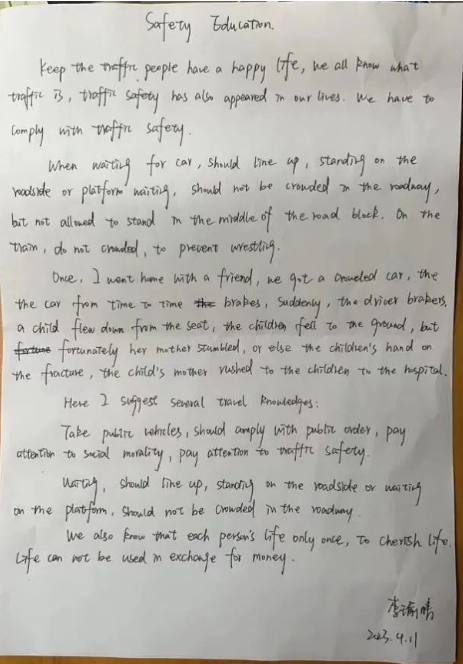 Safety Education.
Keep the traffic people have a happy life, we all know what
traffic is, traffic safety has also appeared in our lives. We have to
comply with traffic safety.
When waiting for car, should line up, standing on the
roadside or platform waiting, should not be crowded in the roadway,
but not allowed to stand in the middle of the road block. On the
train, do not crowded, to prevent wrestling.
Once, I went home with a friend, we got a crowded car, the
the car from time to time the brakes, suddenly, the driver brakers,
a child flew down from the seat, the children fell to the ground, but
fortune fortunately her mother stumbled, or else the children's hand on
the fracture, the child's mother rushed to the children to the hospital.
Here I suggest several travel knowledges:
Take public vehicles, should comply with public order, pay
attention to social morality, pay attention to traffic safety.
Waiting, should line up, standing on the roadside or waiting
on the platform, should not be crowded in the roadway.
We also know that each person's life only once, to cherish life.
Life can not be used in exchange for money.
2023.4.11